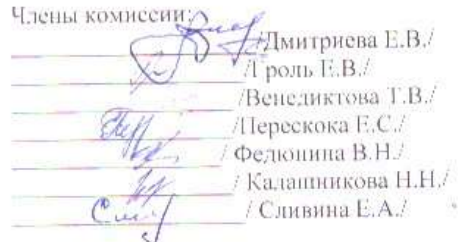 Члены комиссии:
/Дмитриева Е.В./
/Гроль Е.В./
/Венедиктова Т.В./
/Перескока Е.С./
/ Федюнина В.Н./
/ Калашникова Н.Н./
/ Сливина Е.А./